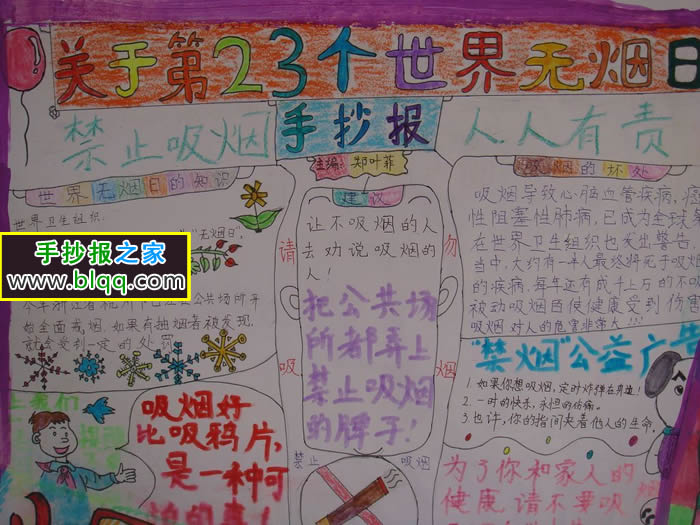 关于第23个世界无烟日
禁止吸烟
手抄报
人人有责
主编:郑叶菲
世界无烟日的知识
世界卫生组织:
"无烟日",
公共场所开
始全面戒烟.如果有抽烟者被发现,
就会受到一定的处罚
手抄报之家
www.blqq.com
建议
让不吸烟的人
去劝说吸烟的
人!
把公共场
所都弄上
禁止吸烟
的牌子!
请
勿
吸
烟
禁止
吸烟
吸烟的坏处
吸烟导致心脑血管疾病,
性阻塞性肺病,已成为全球
在世界卫生组织也发出警告
当中,大约有一半人最终将死于吸烟
的疾病.每年还有成千上万的不吸
被动吸烟而使健康受到伤害
吸烟对人的危害非常大!!!
"禁烟"公益广告
1.如果你想吸烟,定时炸弹在身边!
2.一时的快乐,永恒的伤痛。
3.也许,你的指间夹着他人的生命。
为了你和家人的
健康,请不要吸
让我们
吸烟好
比吸鸦片,
是一种可
怕的毒!